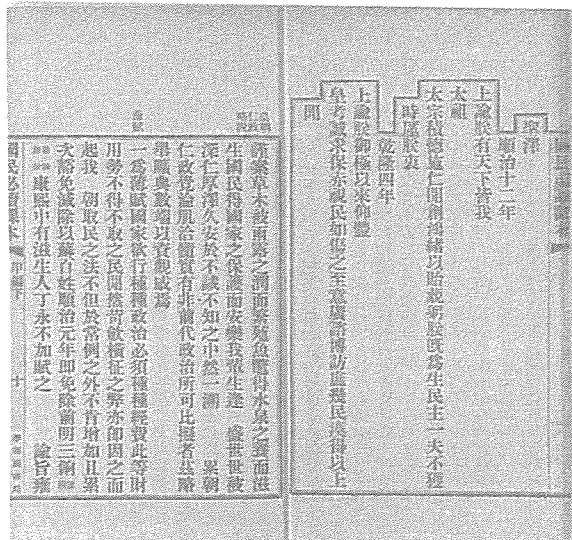 聖澤
順治十二年
上諭朕有天下皆我
太祖
太宗積德施仁開創鴻緒以貽藐躬朕旣爲生民主一夫不獲
時厪朕衷
乾隆四年
上諭朕御極以來仰體
皇考誠求保赤視民如傷之至意廣諮博訪庶幾民隱得以上
聞
謹案草木被雨露之潤而繁殖魚鼈得水泉之養而滋
生國民得國家之保護而安樂我輩生逢 盛世世被
深仁厚澤久安於不識不知之中然一溯 累朝
仁政覺淪肌浹髓實有非前代政治所可比擬者茲略
舉端與數端以資觀感焉
一爲薄賦國家欲行種種政治必須種種經費此等財
用勢不得不取之民間然苛斂橫征之弊亦卽因之而
起我 朝取民之法不但於常例之外不肯增加且累
次豁免減除以蘇百姓順治元年卽免除前明三餉
康熙中有滋生人丁永不加賦之 諭旨雍
國民必讀課本 甲編下 十